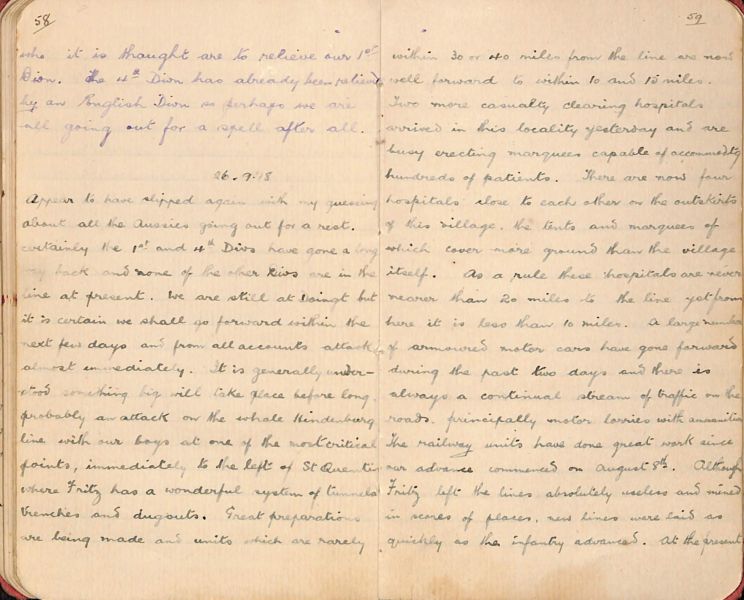 58
who it is thought are to relieve our 1st
Divn. The 4th Divn has already been relieved
by an English Divn so perhaps we are
all going out for a spell after all.
26.9.18
Appear to have slipped again with my guessing
about all the Aussies going out for a rest.
certainly the 1st and 4th Divs have gone a long
way back and none of the other Divs are in the
line at present. We are still at Doingt but
it is certain we shall go forward within the
next few days and from all accounts attack
almost immediately. It is generally under-
stood something big will take place before long.
probably an attack on the whole Hindenburg
line with our boys at one of the most critical
points, immediately to the left of St Quentin
where Fritz has a wonderful system of tunnels
trenches and dugouts. Great preparations
are being made and units which are rarely
59
within 30 or 40 miles from the line are now
well forward to within 10 and 15 miles.
Two more casualty clearing hospitals
arrived in this locality yesterday and are
busy erecting marquees capable of accommodtg
hundreds of patients. There are now four
hospitals close to each other on the outskirts
of this village. the tents and marquees of
which cover more ground than the village
itself. As a rule these hospitals are never
nearer than 20 miles to the line yet from
here it is less than 10 miles. A large number
of armoured motor cars have gone forward
during the past two days and there is
always a continual stream of traffic on the
roads. principally motor lorries with ammunition
The railway units have done great work since
our advance commenced on August 8th. Although
Fritz left the lines absolutely useless and mined
in scores of places, new lines were laid as
quickly as the infantry advanced. At the present